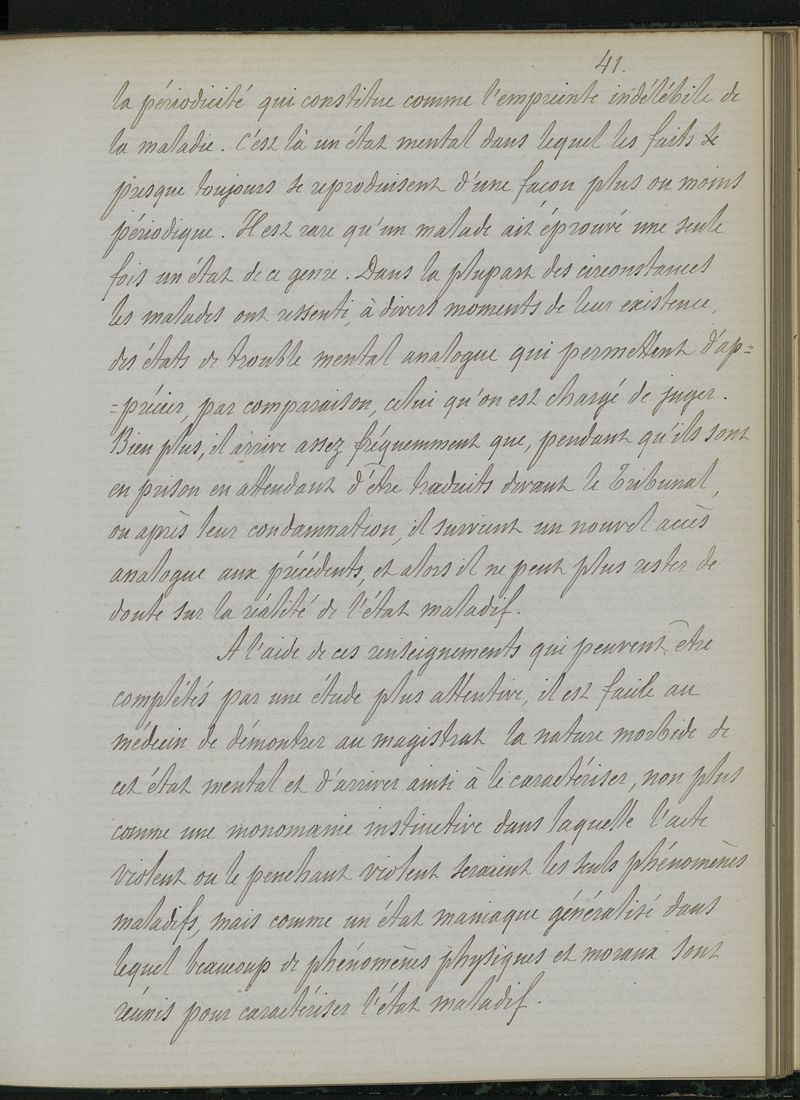 41.
la périodicité qui constitue comme l'empreinte indélébile de
la maladie. C'est là un état mental dans lequel les faits se
presque toujours se reproduisent d'une façon plus ou moins
périodique. Il est rare qu'un malade ait éprouvé une seule
fois un état de ce genre. Dans la plupart des circonstances
les malades ont ressenti, à divers moments de leur existence,
des états de trouble mental analogue qui permettent d'ap=
=précier, par comparaison, celui qu'on est chargé de juger.
Bien plus, il arrive assez fréquemment que, pendant qu'ils sont
en prison en attendant d'être traduits devant le Tribunal,
ou après leur condamnation, il survient un nouvel accès
analogue aux précédents, et alors il ne peut plus rester de
doute sur la réalité de l'état maladif.
A l'aide de ces renseignements qui peuvent être
complétés par une étude plus attentive, il est facile au
médecin de démontrer au magistrat la nature morbide de
cet état mental et d'arriver ainsi à le caractériser, non plus
comme une monomanie instinctive dans laquelle l'acte
violent ou le penchant violent seraient les seuls phénomènes
maladifs, mais comme un état maniaque généralisé dans
lequel beaucoup de phénomènes physiques et moraux sont
réunis pour caractériser l'état maladif.